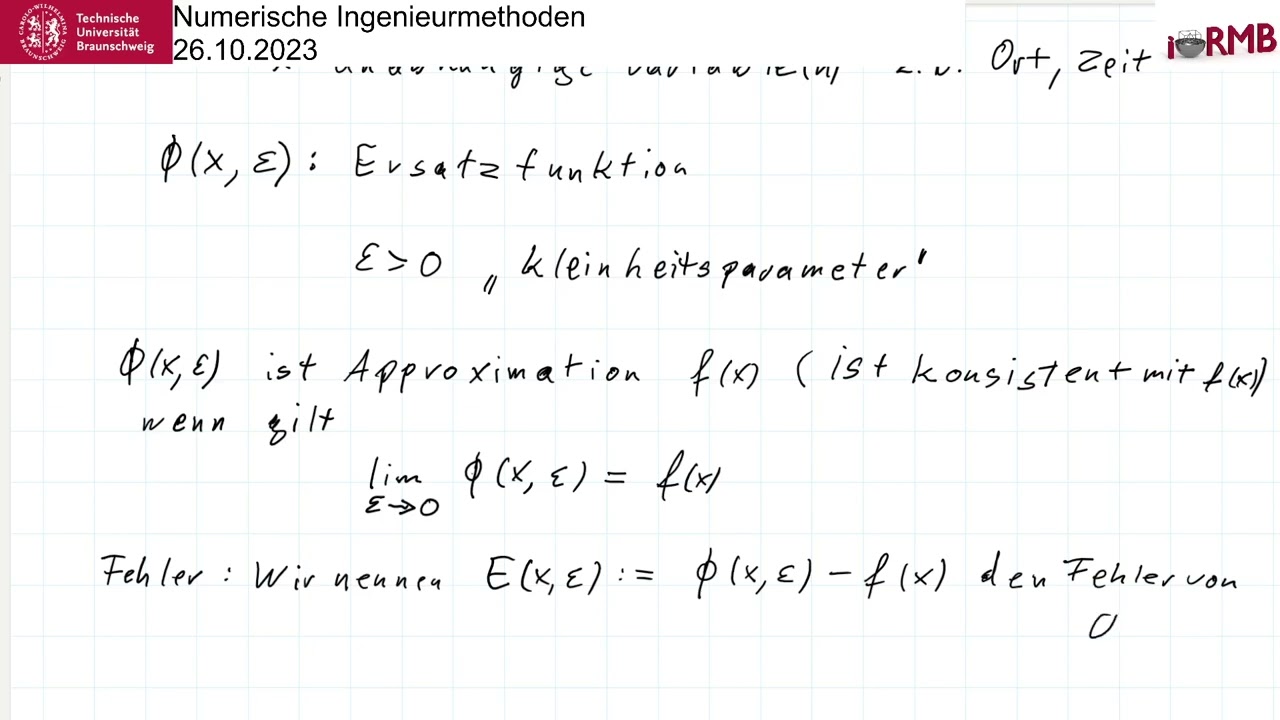 Technische
Universität
Braunschweig
Numerische Ingenieurmethoden
26.10.2023
iRMB
Ort, Zeit
ϕ(x, ε) : Ersatzfunktion
ε > 0 „Kleinheitsparameter"
ϕ(x, ε) ist Approximation f(x) (ist konsistent mit f(x))
wenn gilt
lim ϕ(x, ε) = f(x)
ε→0
Fehler : Wir nennen E(x, ε) := ϕ(x, ε) − f(x) den Fehler von